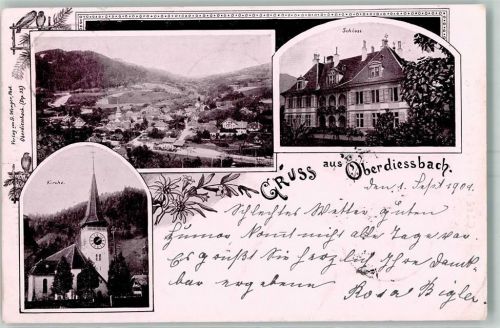 Verlag von
Oberdiessbach.
Schloss
Kirche.
GRUSS aus Oberdiessbach.
Den 1. Sept 1901.
Schlechtes Wetter guten
Humor kommt nicht alle Tage vor
Es grüßt Sie herzlich Ihre dank-
bar ergebene Rosa Bigler